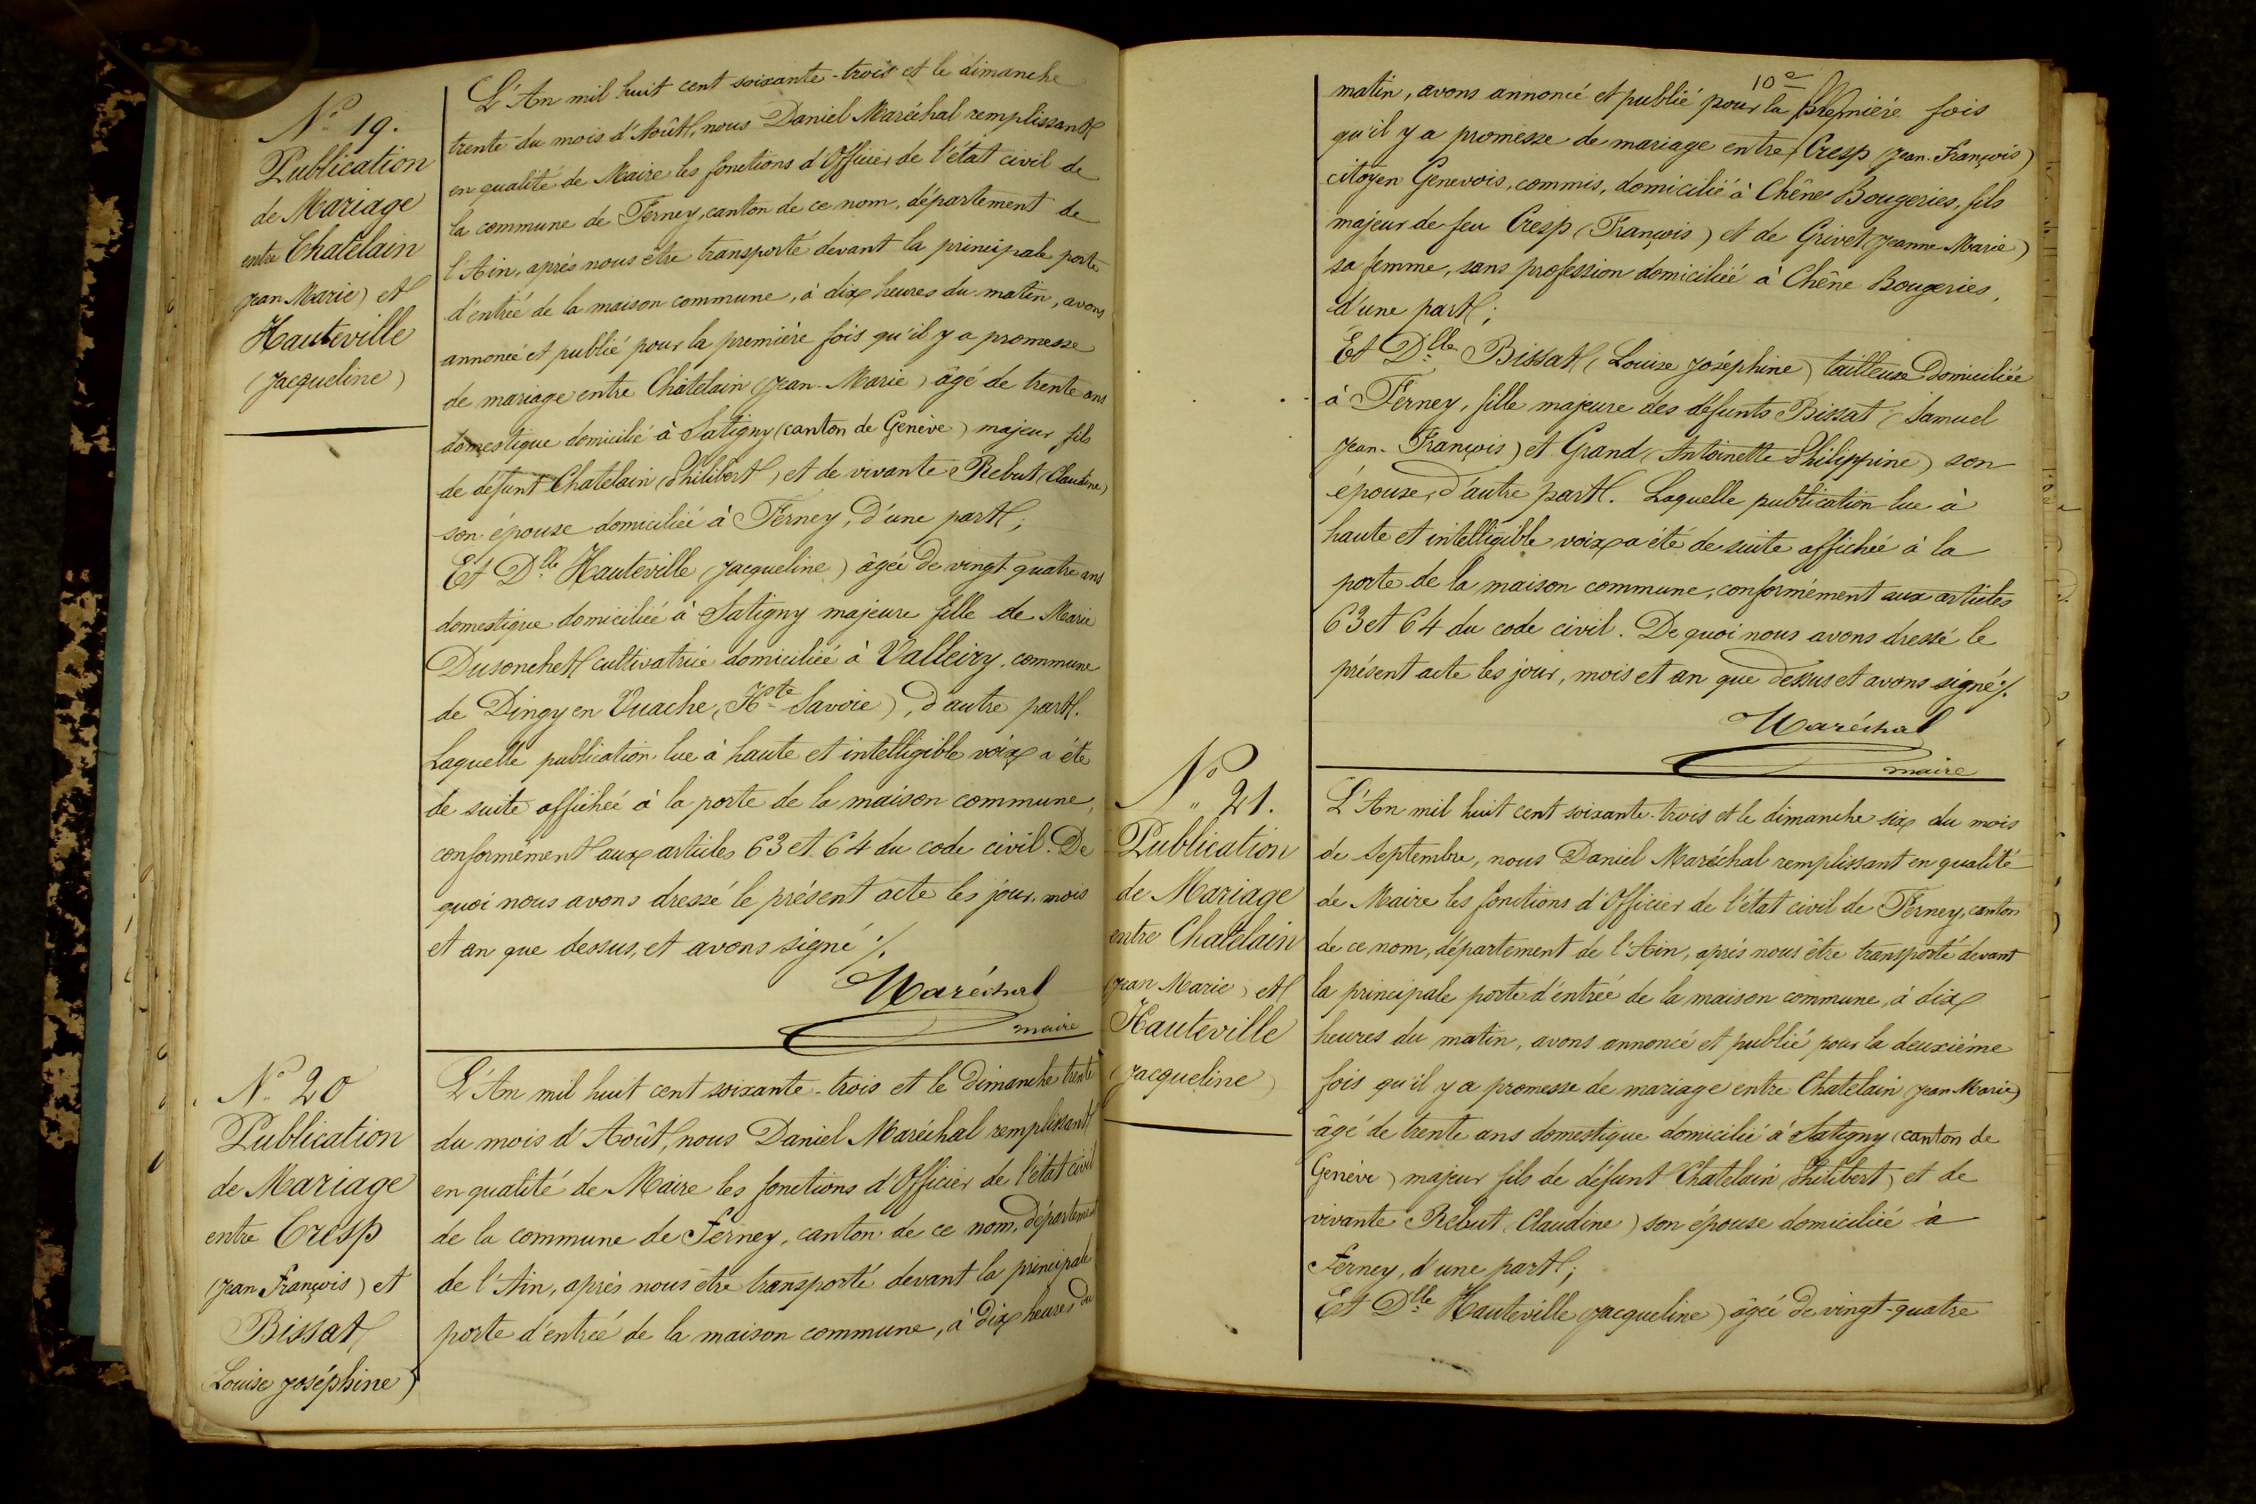 Nº 19.
Publication
de Mariage
entre Chatelain
(Jean Marie) et
Hauteville
(Jacqueline)
L'An mil huit cent soixante-trois et le dimanche
trente du mois d'Août, nous Daniel Maréchal remplissant
en qualité de Maire les fonctions d'Officier de l'état civil de
la commune de Ferney, canton de ce nom, département de
l'Ain, après nous être transporté devant la principale porte
d'entrée de la maison commune, à dix heures du matin, avons
annoncé et publié pour la première fois qu'il y a promesse
de mariage entre Châtelain (Jean-Marie) âgé de trente ans
domestique domicilié à Satigny (canton de Genève) majeur fils
de défunt Chatelain (Philibert) et de vivante Rebut (Claudine)
son épouse domiciliée à Ferney, d'une part;
Et Dlle Hauteville (Jacqueline) âgée de vingt quatre ans
domestique domiciliée à Satigny majeure fille de Marie
Dusonchet cultivatrice domiciliée à Valleiry, commune
de Dingy en Vuache, (Hte Savoie), d'autre part.
Laquelle publication lue à haute et intelligible voix a été
de suite affichée à la porte de la maison commune,
conformément aux articles 63 et 64 du code civil. De
quoi nous avons dressé le présent acte les jour, mois
et an que dessus, et avons signé ./.
Maréchal
maire
Nº 20
Publication
de Mariage
entre Cresp
(Jean François) et
Bissat
(Louise Joséphine)
L'An mil huit cent soixante-trois et le Dimanche trente
du mois d'Août, nous Daniel Maréchal remplissant
en qualité de Maire les fonctions d'Officier de l'état civil
de la commune de Ferney, canton de ce nom, département
de l'Ain, après nous être transporté devant la principale
porte d'entrée de la maison commune, à Dix heures du
10e
matin, avons annoncé et publié pour la première fois
qu'il y a promesse de mariage entre Cresp (Jean-François)
citoyen Genevois, commis, domicilié à Chêne Bougeries, fils
majeur de feu Cresp (François) et de Grivet (Jeanne-Marie)
sa femme, sans profession domiciliée à Chêne Bougeries,
d'une part;
Et Dlle Bissat (Louise Joséphine) tailleuse domiciliée
à Ferney, fille majeure des défunts Bissat (Samuel
Jean-François) et Grand (Antoinette Philippine) son
épouse, d'autre part. Laquelle publication lue à
haute et intelligible voix a été de suite affichée à la
porte de la maison commune, conformément aux articles
63 et 64 du code civil. De quoi nous avons dressé le
présent acte les jour, mois et an que dessus et avons signé ./.
Maréchal
maire
Nº 21.
Publication
de Mariage
entre Chatelain
(Jean Marie) et
Hauteville
(Jacqueline)
L'An mil huit cent soixante-trois et le dimanche six du mois
de Septembre, nous Daniel Maréchal remplissant en qualité
de Maire les fonctions d'Officier de l'état civil de Ferney, canton
de ce nom, département de l'Ain, après nous être transporté devant
la principale porte d'entrée de la maison commune, à dix
heures du matin, avons annoncé et publié pour la deuxième
fois qu'il y a promesse de mariage entre Chatelain (Jean Marie)
âgé de trente ans domestique domicilié à Satigny (canton de
Genève) majeur fils de défunt Chatelain (Philibert) et de
vivante Rebut (Claudine) son épouse domiciliée à
Ferney, d'une part;
Et Dlle Hauteville (Jacqueline) âgée de vingt-quatre